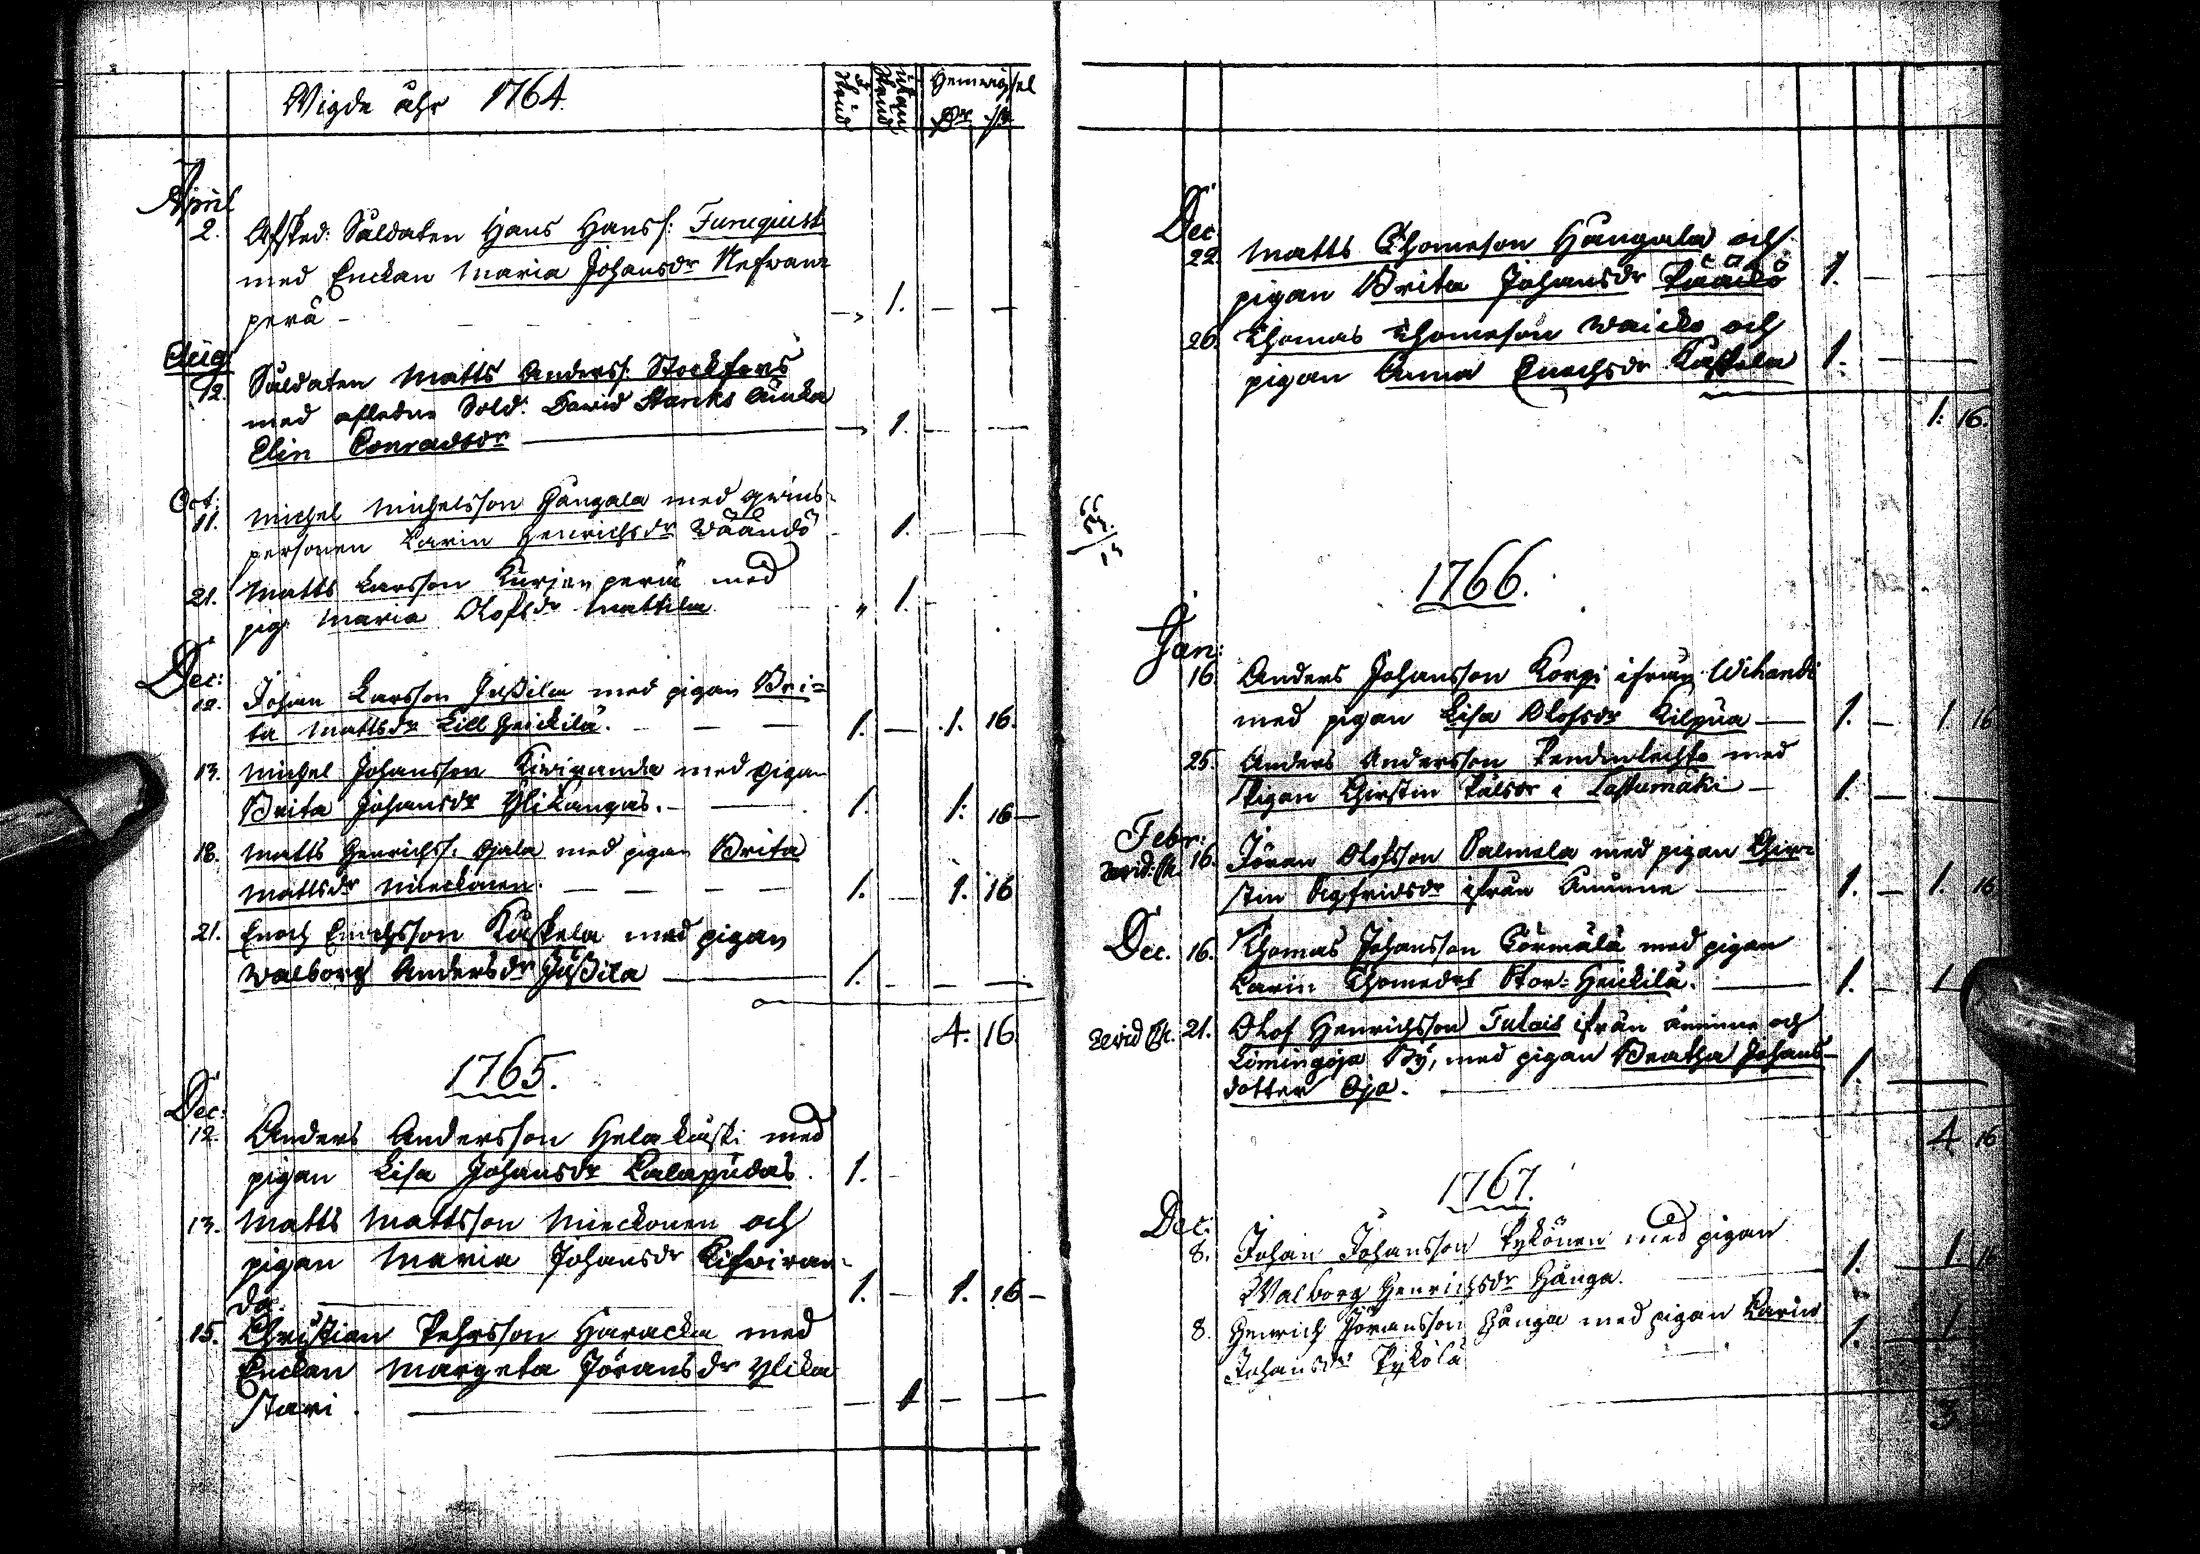 Wigde åhr 1764.
Hemwigsel
April
2. Afsked: Soldaten Hans Hanss: Furuquist
med Enckan Maria Johansdr Nefwan-
perä - 1. — —
Aug:
12. Soldaten Matts Anderss: Stockfors
med afledne Sold: David Starcks Änka
Elin Conradsdr — 1. — —
Oct:
11. Michel Michelsson Hångala med qwins-
personen Carin Henrichsdr Wäändö 1.
21. Matts Larsson Kurjenperä med
pig: Maria Olofsdr Mattila 1.
Dec:
12. Johan Larsson Jussila med pigan Bri=
ta Mattsdr Lill Heickilä. 1. — 1. 16.
13. Michel Johansson Kiviranda med pigan
Brita Johansdr Ylikangas. 1. 1. 16
18. Matts Henrichss: Ojala med pigan Brita
Mattsdr Mieckonen. 1. 1. 16
21. Enoch Enochsson Kåskela med pigan
Walborg Andersdr Jussila 1. — —
4. 16
1765.
Dec:
12. Anders Andersson Helakuski med
pigan Lisa Johansdr Kalapudas. 1.
13. Matts Mattsson Mieckonen och
pigan Maria Johansdr Kifwiran-
da. 1. — 1. 16
15. Christian Pehrsson Haracka med
Enckan Margeta Jöransdr Ylika
stari. 1 — —
Dec
22. Matts Thomeson Hångala och
pigan Brita Johansdr 1. — —
26. Thomas Thomeson Waicko och
pigan Anna Enochsdr Kåskela 1. —
1. 16.
1766.
Jan:
16. Anders Johansson Korpi ifrån Wihandi
med pigan Lisa Olofsdr Kilpua 1. — 1. 16
25. Anders Andersson Pendinlechto med
Pigan Chirstin Pålsdr i Lassumäki 1. — —
Febr:
16. Jöran Olofsson Palmela med pigan Chir-
stin Sigfridsdr ifrån 1. — 1. 16
Dec. 16. Thomas Johansson Törmälä med pigan
Carin Thomedr Stor-Heickilä. 1. — 1
21. Olof Henrichsson Tulais ifrån och
Limingoja By, med pigan Beatha Johans-
dotter Oja. 1. —
4 16
1767.
Dec:
8. Johan Johansson Pykönen med pigan
Walborg Henrichsdr Hånga. 1. — 1. 16
8. Henrich Jöransson Hånga med pigan Carin
Johansdr Pykölä 1. 1
3